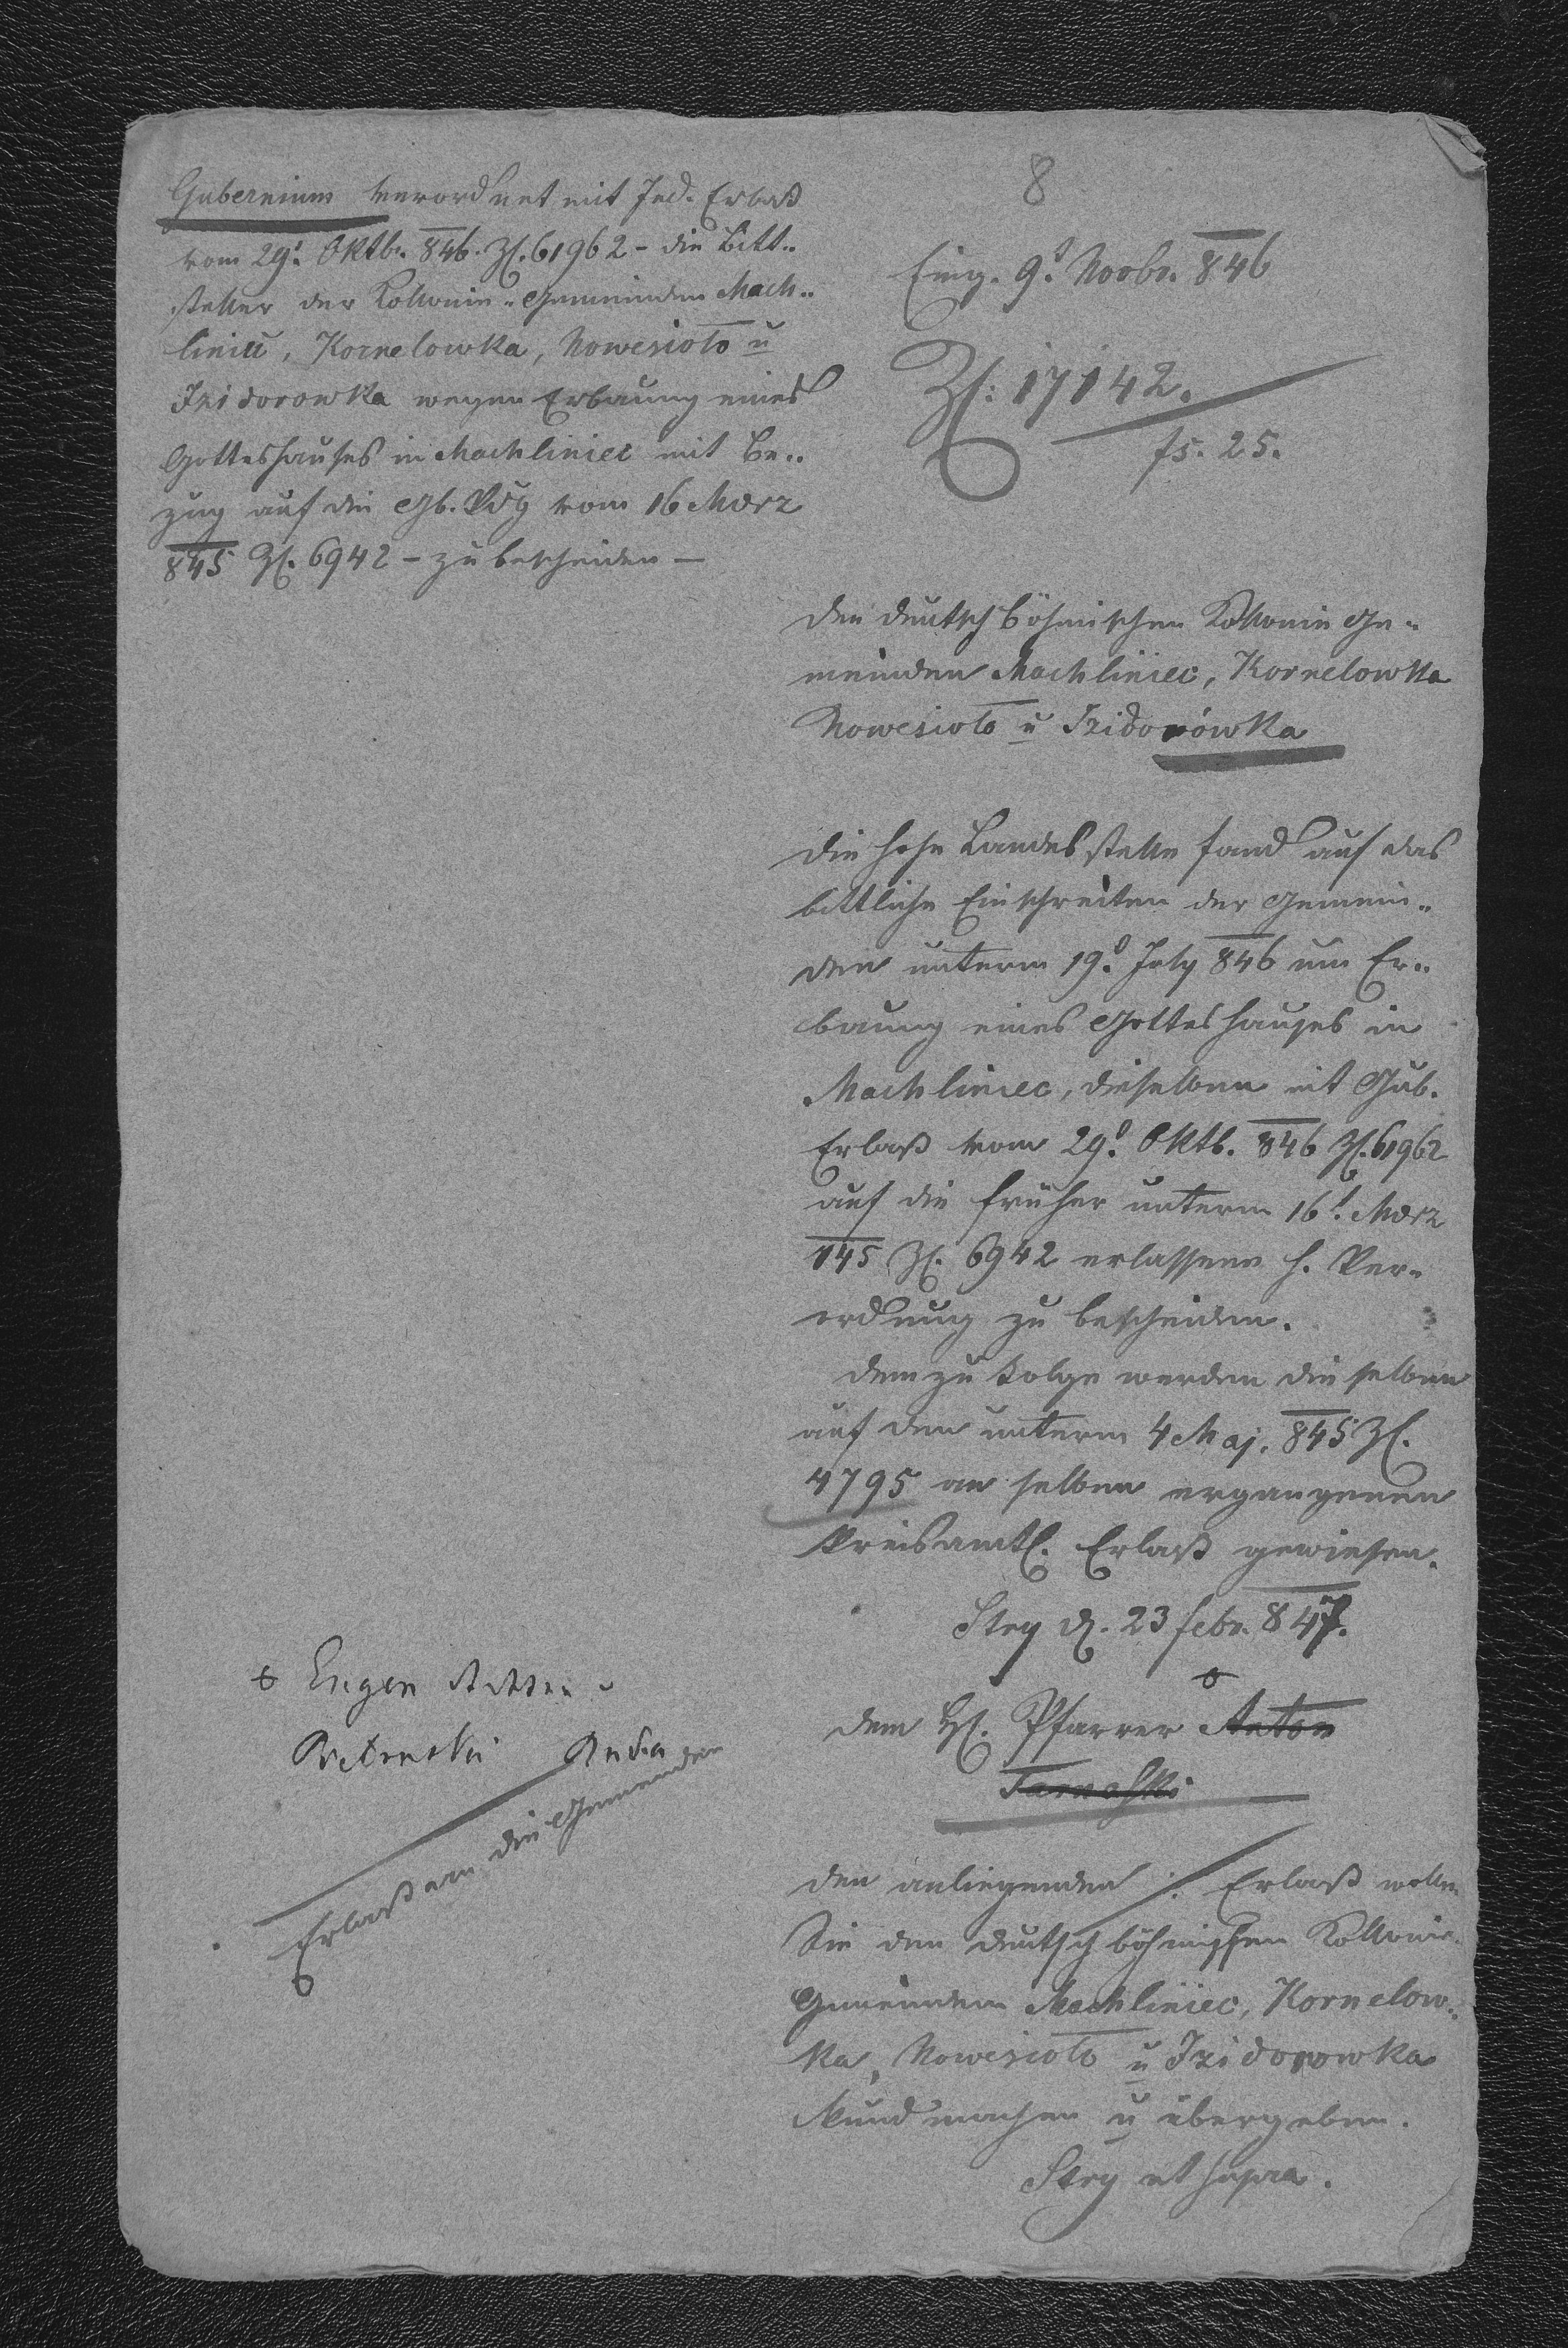 Gubernium verordnet mit Ind. Erlaß
vom 29t. Oktb. 846. Zl. 61962 – die Bitt-
steller der Kollonie-Gemeinden Mach-
liniec, Kornelowka, Nowesioło u
Izidorowka wegen Erbauung eines
Gotteshauses in Machliniec mit Be-
zug auf die Gb. Vdg vom 16 Merz
845 Zl. 6942 – zu bescheiden –
8
Eing. 9t. Novbr. 846
Zl: 17142.
fs. 25.
Den deutsch böhmischen Kollonie Ge-
meinden Machliniec, Kornelowka
Nowesioło u Izidorówka
Die hohe Landesstelle fand auf das
bittliche Einschreiten der Gemein-
den unterm 19t. July 846 um Er-
bauung eines Gotteshauses in
Machliniec, dieselben mit Gub.
Erlaß vom 29t. Oktb. 846 Zl. 61962
auf die früher unterm 16t. Merz
845 Zl. 6942 erlassene h. Ver-
ordnung zu bescheiden.
Dem zu Folge werden dieselben
auf den unterm 4 Maj. 845 Zl.
4795 an selben ergangenen
Kreisamtl. Erlaß gewiesen.
Stry d. 23 febr. 847.
Dem H. Pfarrer Anton
Eugen
Erlaß an die Gemeinden
Den anliegenden ./. Erlaß wollen
Sie den deutsch böhmischen Kollonie-
Gemeinden Machliniec, Kornelow-
ka, Nowesioło u Izidorowka
kundmachen u übergeben.
Stry ut supra.